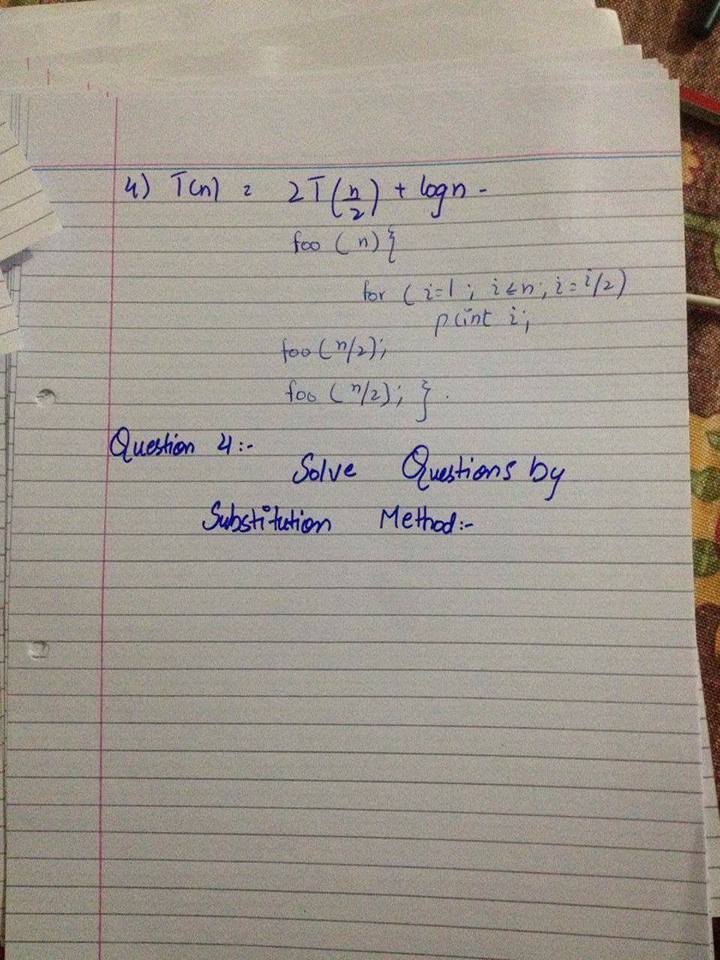 4) T(n) = 2T(n/2) + logn -
foo (n){
for (i=1; i≤n; i=i/2)
print i;
foo(n/2);
foo (n/2); }.
Question 4:-
Solve Questions by
Substitution Method:-